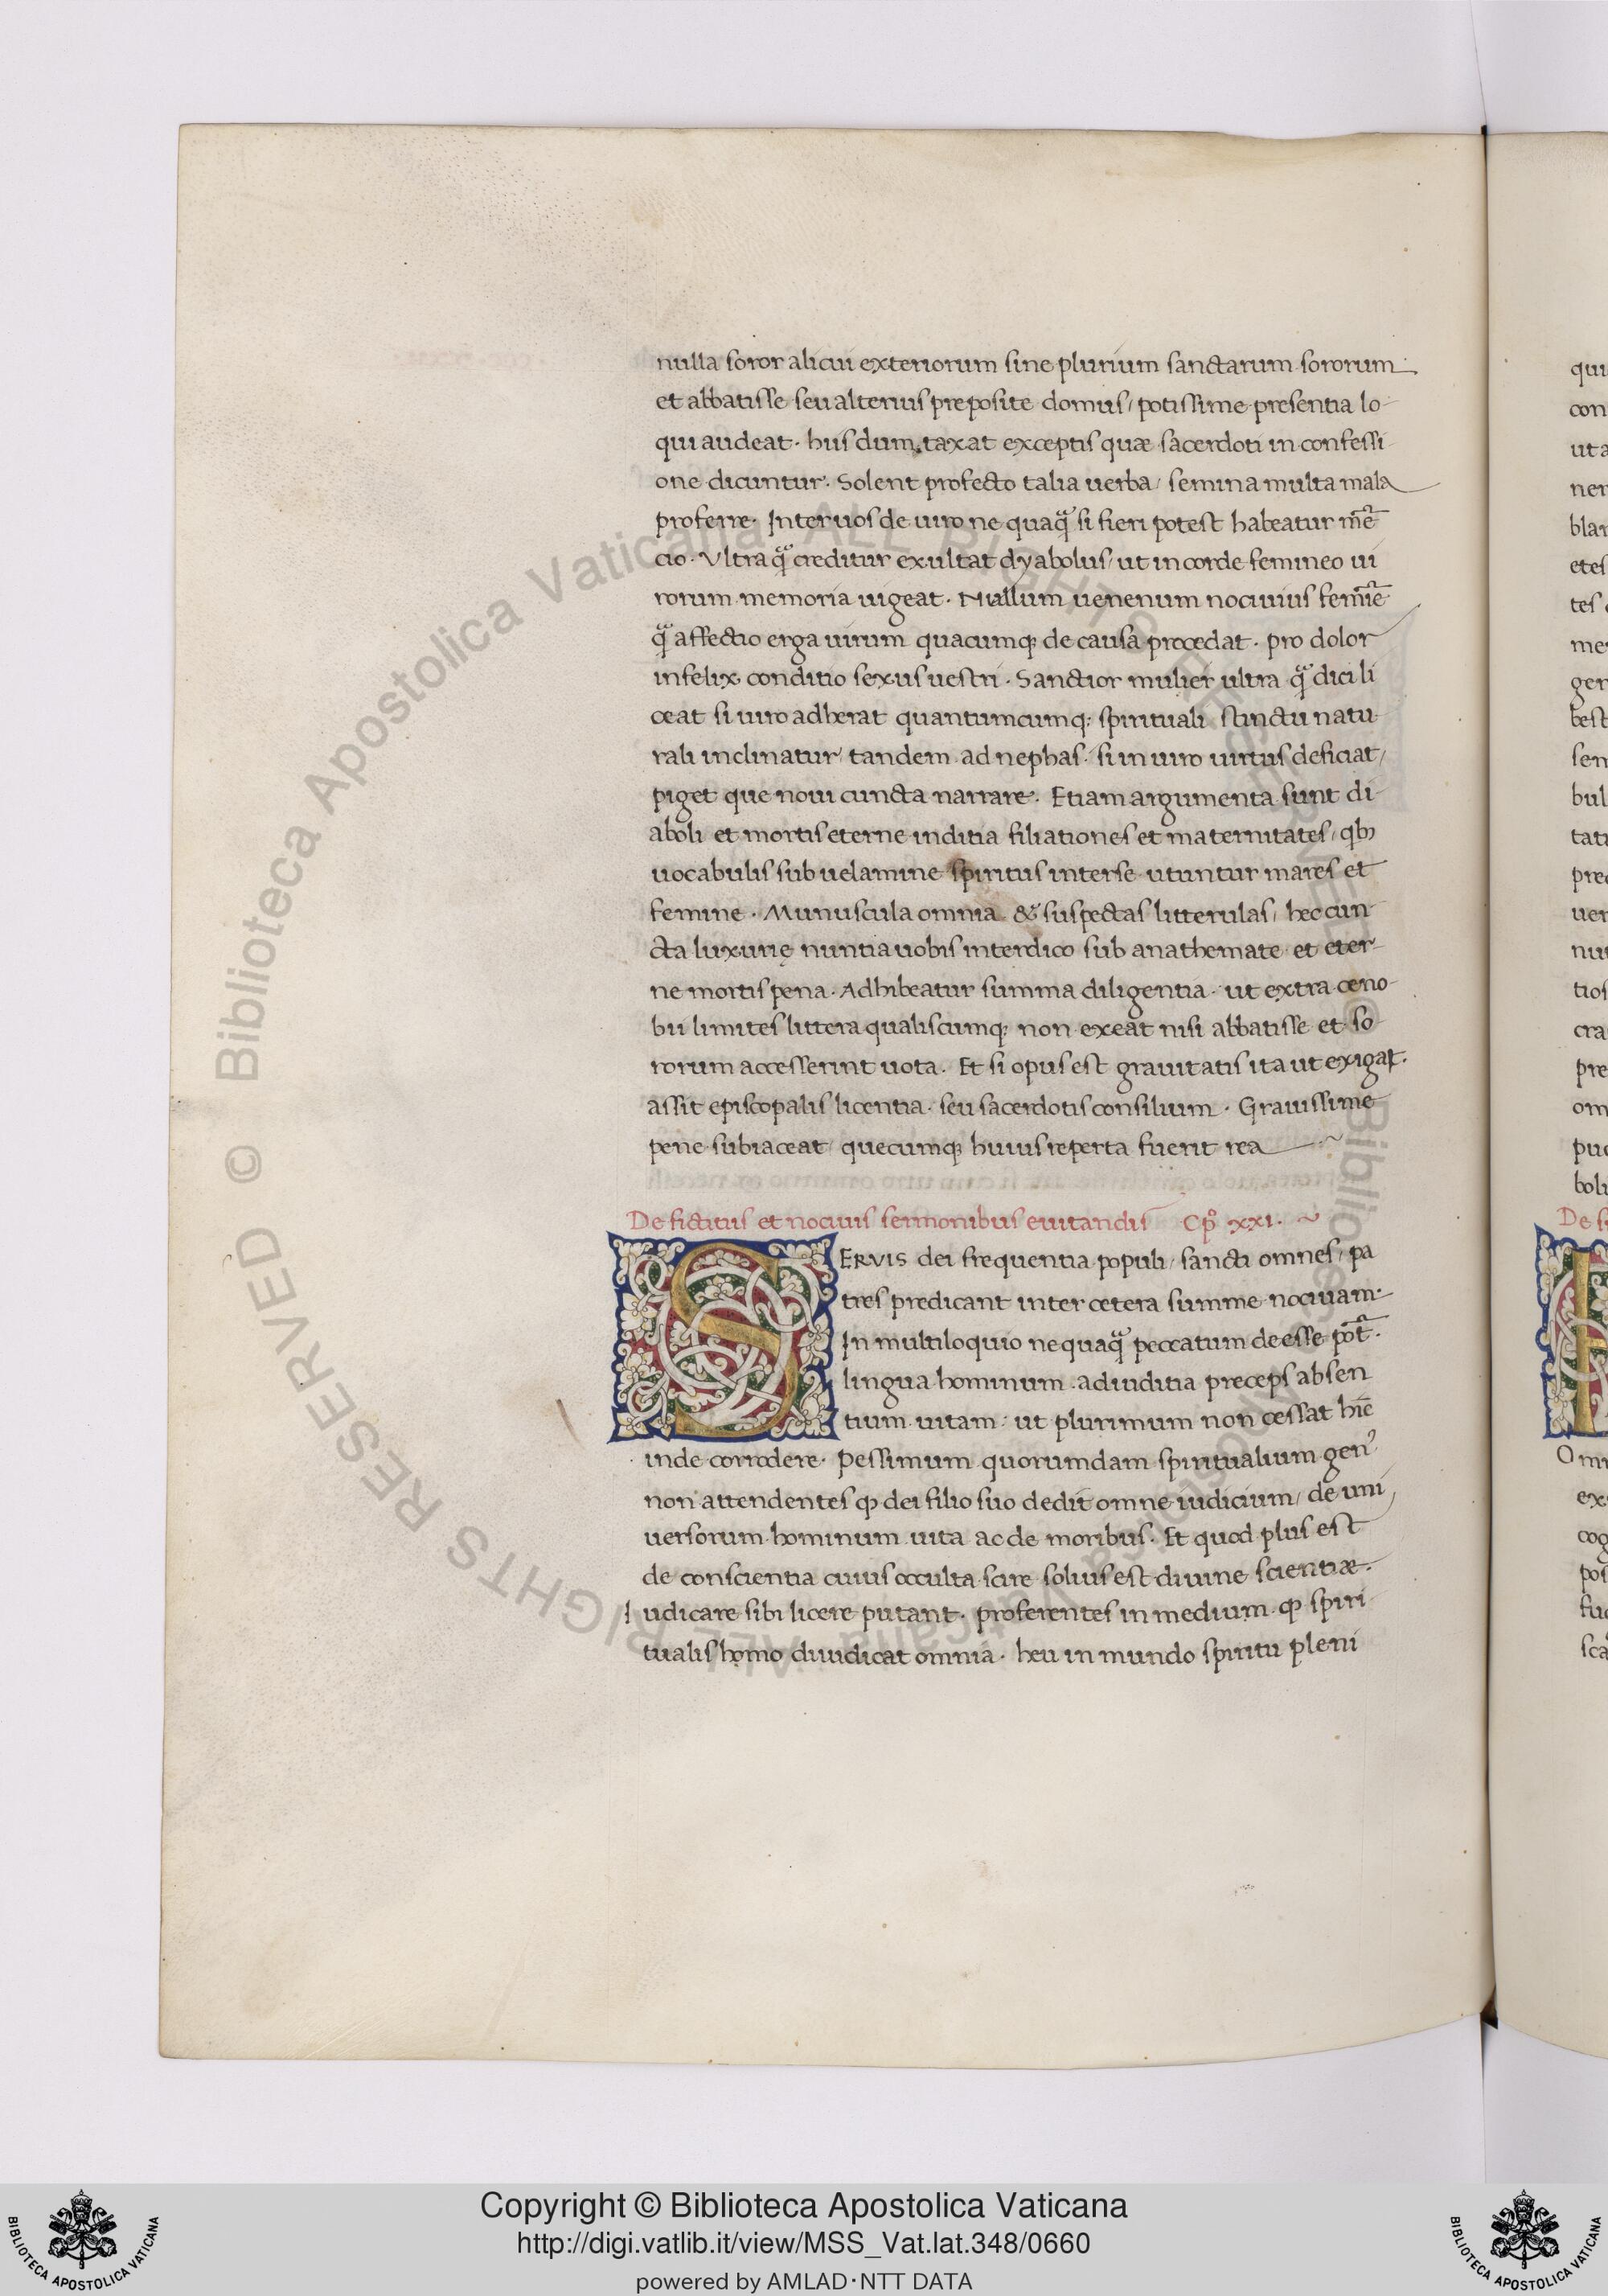 nulla soror alicui exteriorum sine plurium sanctarum sororum
et abbatisse seu alterius preposite domus, potissime presentia lo-
qui audeat. huis dum taxat exceptis quæ sacerdoti in confessi-
one dicuntur. Solent profecto talia uerba, semina multa mala
proferre. Inter uos de uiro ne quaq̃ si fieri potest habeatur m̃e
cio. Vltra q̃ creditur exultat dyabolus, ut in corde femineo ui
rorum memoria uigeat. Nullum uenenum nociuius femĩe
q̃ affectio erga uirum quacumq; de causa procedat. pro dolor
infelix conditio sexus uestri. Sanctior mulier ultra q̃ dici li
ceat si uiro adherat quantumcumq; spirituali stinctu natu-
rali inclinatur, tandem ad nephas. si in uiro uirtus deficiat,
piget que noui cuncta narrare. Etiam argumenta sunt di-
aboli et mortis eterne inditia filiationes et maternitates, qb;
uocabulis sub uelamine spiritus inter se utuntur mares et
femine. Munuscula omnia & suspectas litterulas, hec cun
cta luxurię nuntia uobis interdico sub anathemate et eter-
ne mortis pena. Adhibeatur summa diligentia. ut extra ceno-
bii limites littera qualiscumq; non exeat nisi abbatisse et so-
rorum accesserint uota. Et si opus est grauitatis ita ut exigat.
assit episcopalis licentia. seu sacerdotis consilium. Grauissime
pene subiaceat, quecumq; huius reperta fuerit rea
De fictitiis et nociuis sermonibus euitandis Cp̊ xxi.
SERVIS dei frequentia populi, sancti omnes, pa
tres predicant inter cetera summe nociuam.
In multiloquio nequaq̃ peccatum deesse põt.
lingua hominum ad iuditia preceps absen
tium uitam: ut plurimum non cessat hĩc
inde corrodere. Pessimum quorumdam spiritualium gen'
non attendentes ꝙ dei filio suo dedit omne iudicium, de uni
uersorum hominum uita ac de moribus. Et quod plus est
de conscientia cuius occulta scire solius est diuine scientiæ.
Iudicare sibi licere putant. proferentes in medium ꝙ spiri-
tualis homo diiudicat omnia. heu in mundo spiritu pleni
Copyright © Biblioteca Apostolica Vaticana
http://digi.vatlib.it/view/MSS_Vat.lat.348/0660
powered by AMLAD·NTT DATA
BIBLIOTECA APOSTOLICA VATICANA
BIBLIOTECA APOSTOLICA VATICANA
© Biblioteca Apostolica Vaticana ALL RIGHTS RESERVED
© Biblioteca Apostolica Vaticana ALL RIGHTS RESERVED